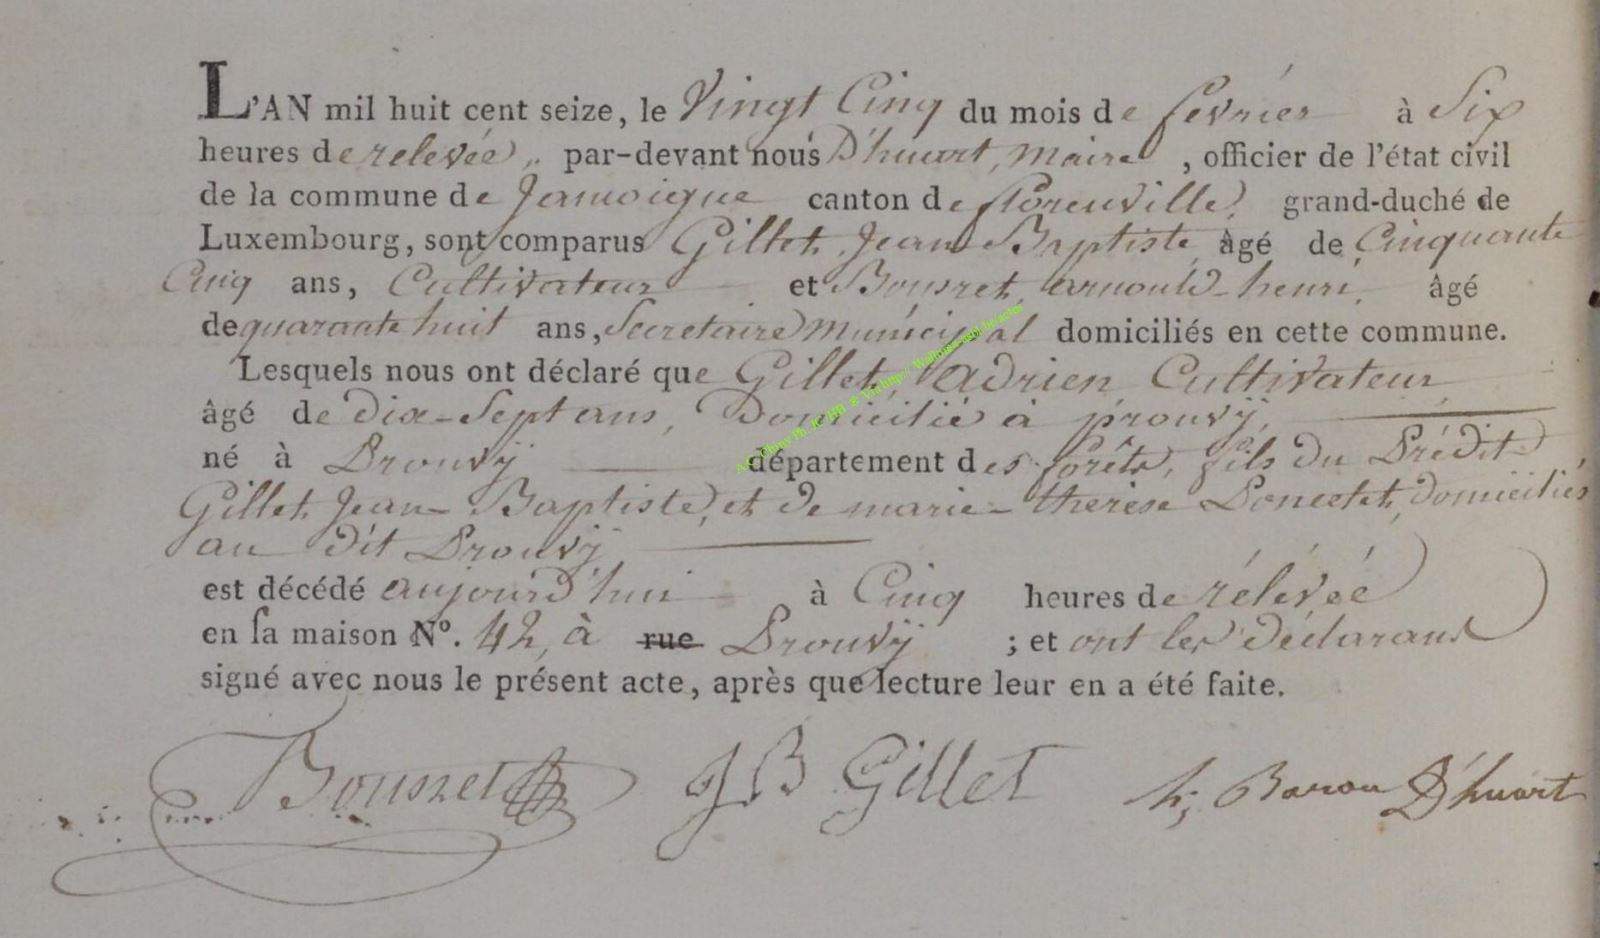 L'AN mil huit cent seize, le Vingt Cinq du mois de fevrier à Six
heures de relevée, par-devant nous D'huart, Maire, officier de l'état civil
de la commune de Jamoigne canton de florenville, grand-duché de
Luxembourg, sont comparus Gillet, Jean Baptiste, âgé de Cinquante
Cinq ans, Cultivateur et Bousret, arnould-henri, âgé
de quarante huit ans, Secretaire Municipal domiciliés en cette commune.
Lesquels nous ont déclaré que Gillet, Adrien Cultivateur
âgé de dix-Sept ans, Domicilié à prouvÿ,
né à Prouvÿ département des forêts, fils du Prédit
Gillet Jean-Baptiste, et de marie-therèse Poncelet, domiciliés
au dit Prouvÿ
est décédé aujourd'hui à Cinq heures de rélévéé
en sa maison N°. 42, à rue Prouvÿ ; et ont les déclarans
signé avec nous le présent acte, après que lecture leur en a été faite.
Bousret JB Gillet h; Baron D'huart